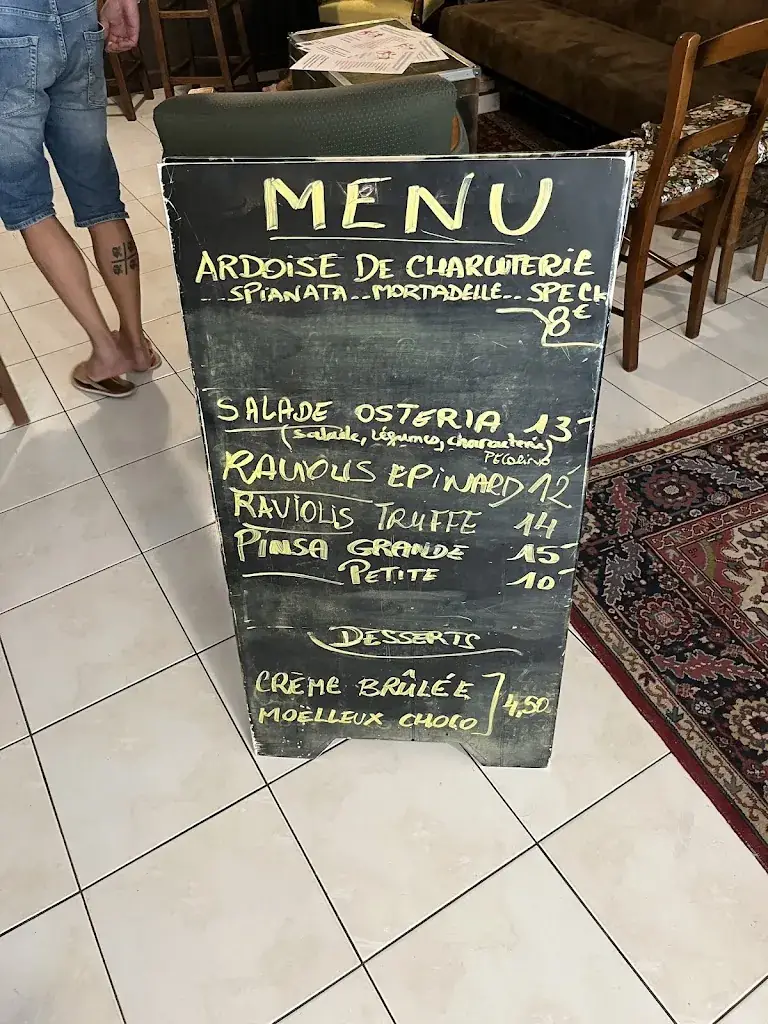 MENU
ARDOISE DE CHARCUTERIE
SPIANATA..MORTADELLE..SPECK
8€
SALADE OSTERIA 13
(salade, légumes, charcuterie)
PECORINO
RAVIOLIS EPINARD 12
RAVIOLIS TRUFFE 14
PINSA GRANDE 15
PETITE 10
DESSERTS
CRÈME BRÛLÉE
MOËLLEUX CHOCO
4,50